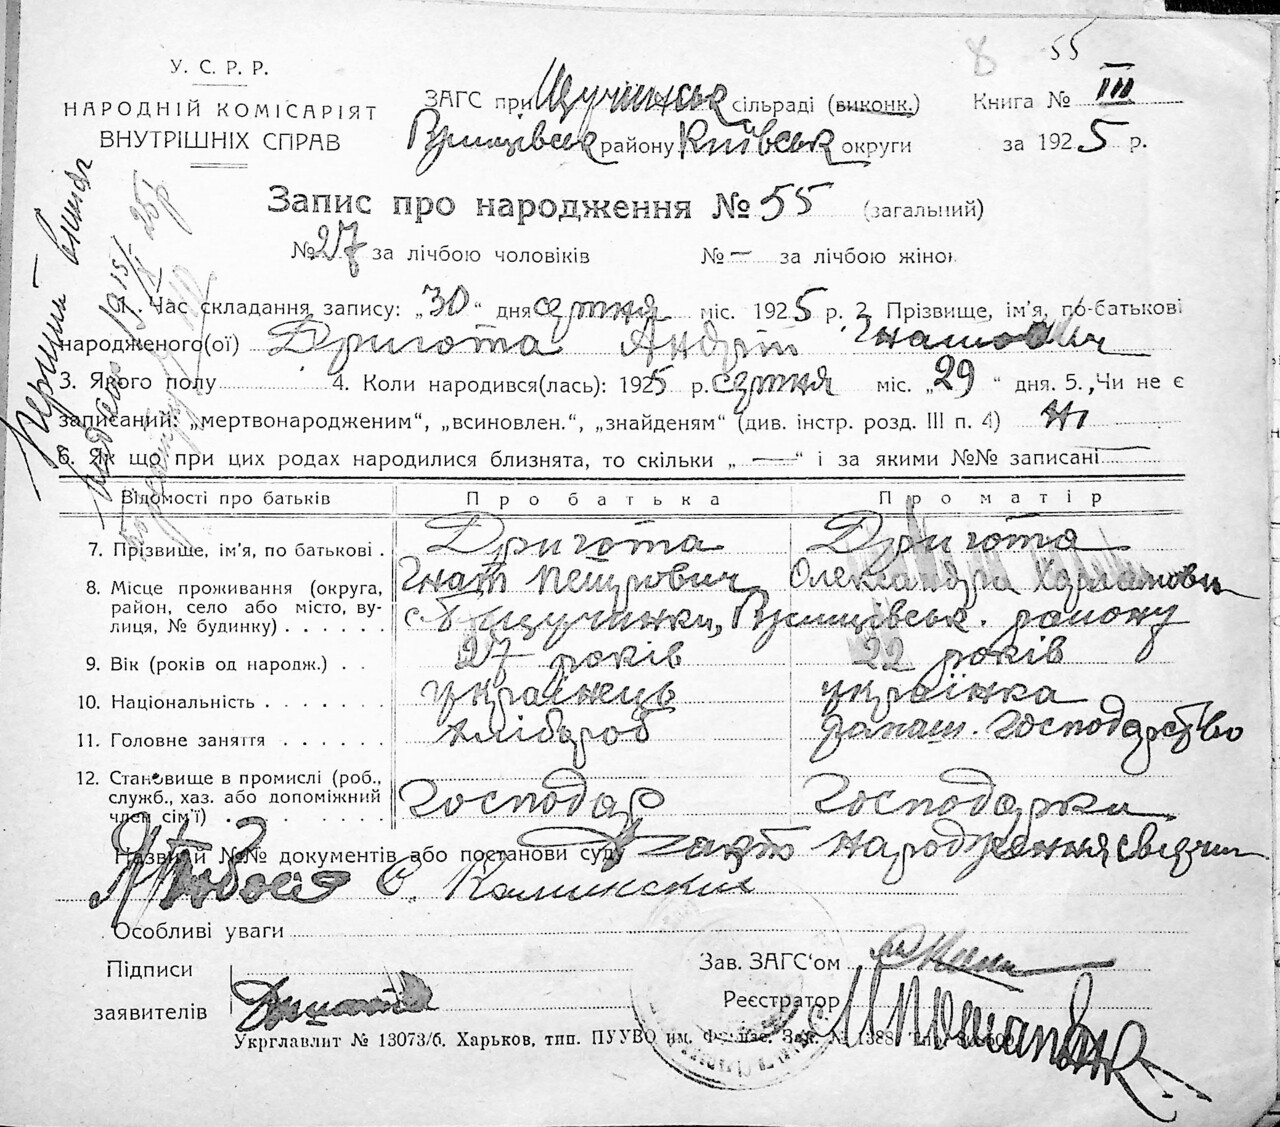 8 55
У. С. Р. Р.
НАРОДНІЙ КОМІСАРІЯТ
ВНУТРІШНІХ СПРАВ
ЗАГС при Щучинськ сільраді (виконк.)
Ржищівськ району Київськ округи
Книга № III
за 1925 р.
Запис про народження № 55 (загальний)
№ 27 за лічбою чоловіків № — за лічбою жінок
1. Час складання запису: „30“ дня серпня міс. 1925 р. 2. Прізвище, ім'я, по-батькові
народженого(ої) Дригота Андрій Гнатович
3. Якого полу 4. Коли народився(лась): 1925 р. серпня міс. „29“ дня. 5. Чи не є
записаний: „мертвонародженим“, „всиновлен.“, „знайденям“ (див. інстр. розд. III п. 4) ні
6. Як що при цих родах народилися близнята, то скільки „ — “ і за якими №№ записані —
Відомості про батьків Про батька Про матір
7. Прізвище, ім'я, по батькові . Дригота Дригота
Гнат Петрович Олександра
8. Місце проживання (округа, район, село або місто, вулиця, № будинку) . . . . . . с. Щучинки, Ржищівськ. району
9. Вік (років од народж.) . . 27 років 22 років
10. Національність . . . . . . . українець українка
11. Головне заняття . . . . . . хлібороб домаш. господарство
12. Становище в промислі (роб., служб., хаз. або допоміжний член сім'ї) . . . . . . . . господар господарка
Назви й №№ документів або постанови суду Факт народження свідчи
Калинский
Особливі уваги
Підписи
заявителів Дригота
Зав. ЗАГС'ом
Реєстратор
Укрглавлит № 13073/б. Харьков, тип. ПУУВО им. Фрунзе. Зак. № 1388
Перший